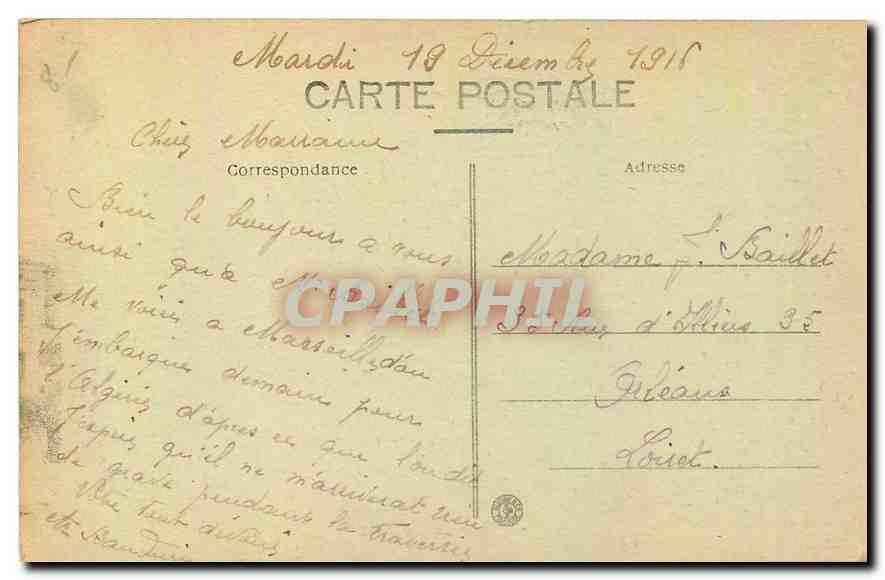 Mardi 19 Disembre 1916
CARTE POSTALE
Chère Marraine
Correspondance
Bien le bonjours à vous
ainsi qu'à M.
Me voici a Marseille d'ou
j'embarque demain pour
l'Algérie d'apres ce que l'on dit
J'espère qu'il ne m'arriverat rien
de grave pendans la traversée
Votre tout dévoué
Adresse
Madame J. Baillet
35 Rue d'Illiers 35
Orléans
Loiret.
CPAPHIL